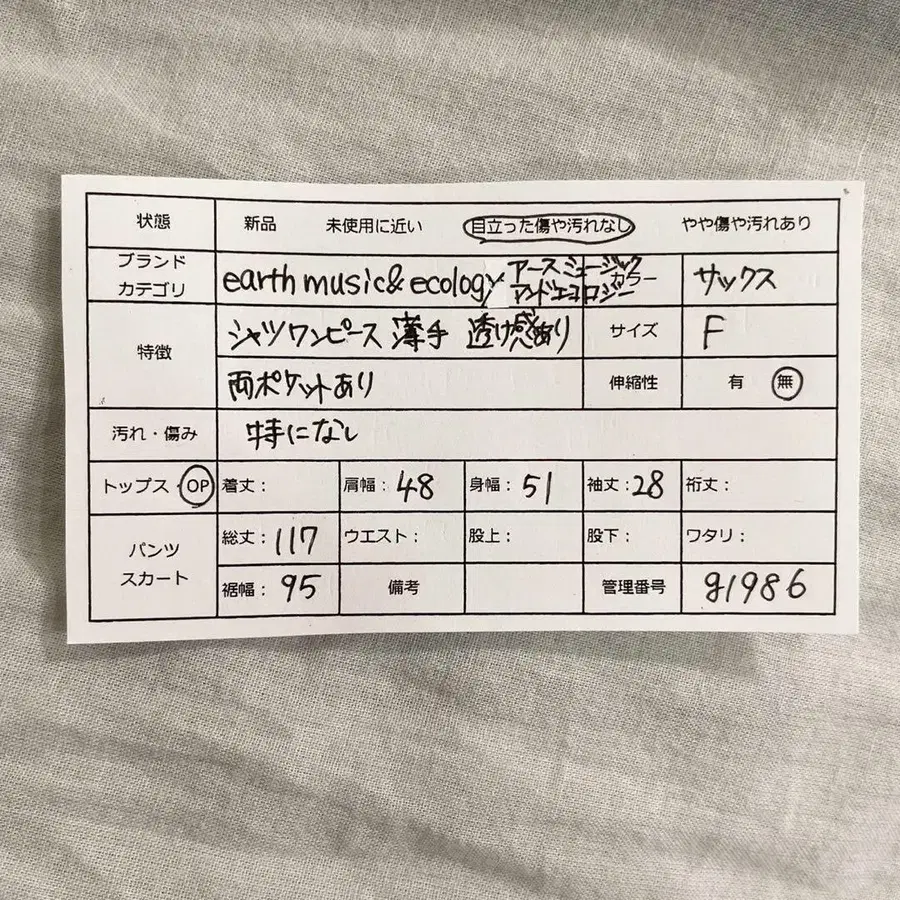 状態 新品 未使用に近い 目立った傷や汚れなし やや傷や汚れあり
ブランド カテゴリ earth music&ecology アースミュージック アンドエコロジー カラー サックス
特徴 シャツワンピース 薄手 透け感あり サイズ F
両ポケットあり 伸縮性 有 無
汚れ・傷み 特になし
トップス・OP 着丈: 肩幅:48 身幅:51 袖丈:28 裄丈:
パンツ スカート 総丈:117 ウエスト: 股上: 股下: ワタリ:
裾幅:95 備考 管理番号 g1986